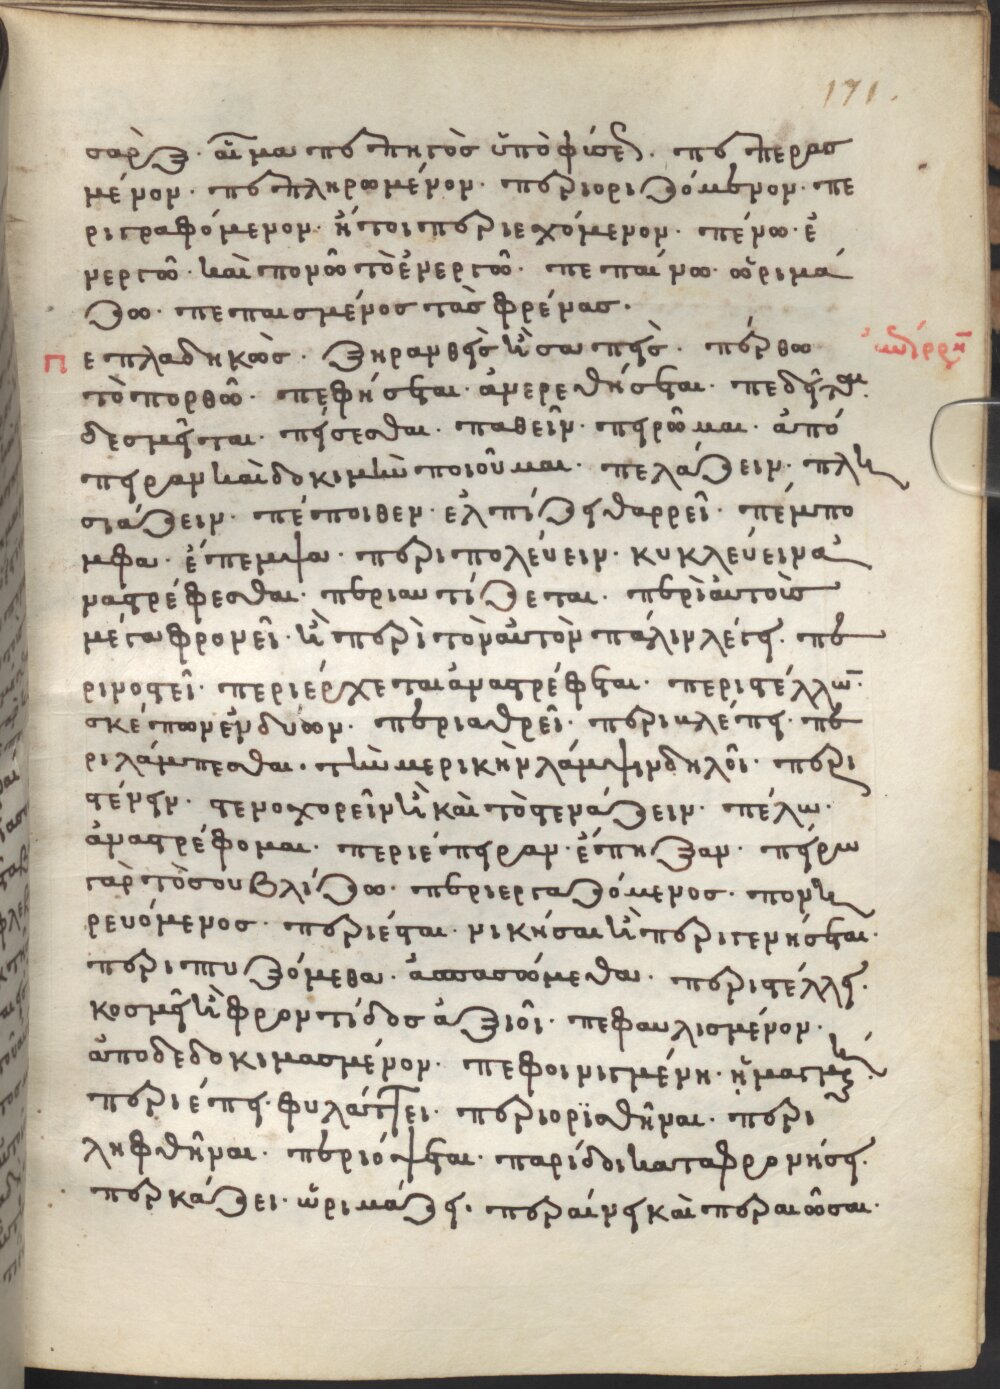 171.
σὰρξ. αἷμα πεπηγὸς ὑπὸ φύσεως. πεπερας
μένον. πεπληρωμένον. περιοριζόμενον. πε
ριγραφόμενον. ἤτοι περιεχόμενον. πένω. ἐ
νεργῶ. καὶ πονῶ τὸ ἐνεργῶ. πεπαίνω. ὡριμά
ζω. πεπαισμένος τὰς φρένας.
Π επλαδηκώς. ξηρανθεὶς ἢ σαπεὶς. πέρθω
τὸ πορθῶ. πεφήσεται. ἀναιρεθήσεται. πεδεῖται
δεσμεῖται. πείσεσθαι. παθεῖν. πειρῶμαι. ἀπό
πειραν καὶ δοκιμὴν ποιοῦμαι. πελάζειν. πλη
σιάζειν. πέποιθεν. ἐλπίζει θαρρεῖ. πέμπο
μφα. ἔπεμψα. περιπολεύειν. κυκλεύειν ἀ
ναστρέφεσθαι. περιαντίζεται. περὶ αὐτοῖς
μέγα φρονεῖ. ἢ περὶ τὸν αὐτὸν πάλιν λέγει. πε
ρινοστεῖ. περιέρχεται ἀναστρέφεται. περιστέλλων.
σκέπων ἐνδύων. περιαθρεῖ. περιβλέπει. πε
ριλάμπεσθαι. τὴν μερικὴν λάμψιν δηλοῖ. περι
στένειν. στενοχορεῖν ἢ καὶ τὸ στενάζειν. πέλω.
ἀναστρέφομαι. περιέπειραν. ἔπηξαν. πείρω
γὰρ τὸ σουβλίζω. περιεργαζόμενος. πονη
ρευόμενος. περιέσται. νικήσαι ἢ περιγενήσεται.
περιπτυξόμεθα. ἀσπασώμεθα. περιστέλλει.
κοσμεῖ ἢ φροντίδος ἀξιοῖ. πεφαυλισμένον.
ἀποδεδοκιμασμένον. πεφοινιγμένη. ἡμαγμένη.
περιέπει. φυλάττει. περιορϊσθῆναι. περι
ληφθῆναι. περιόψεται. παρίδοι καταφρονήσει.
περκάζει. ὡριμάζει. περαίνει καὶ περαιῶσαι.